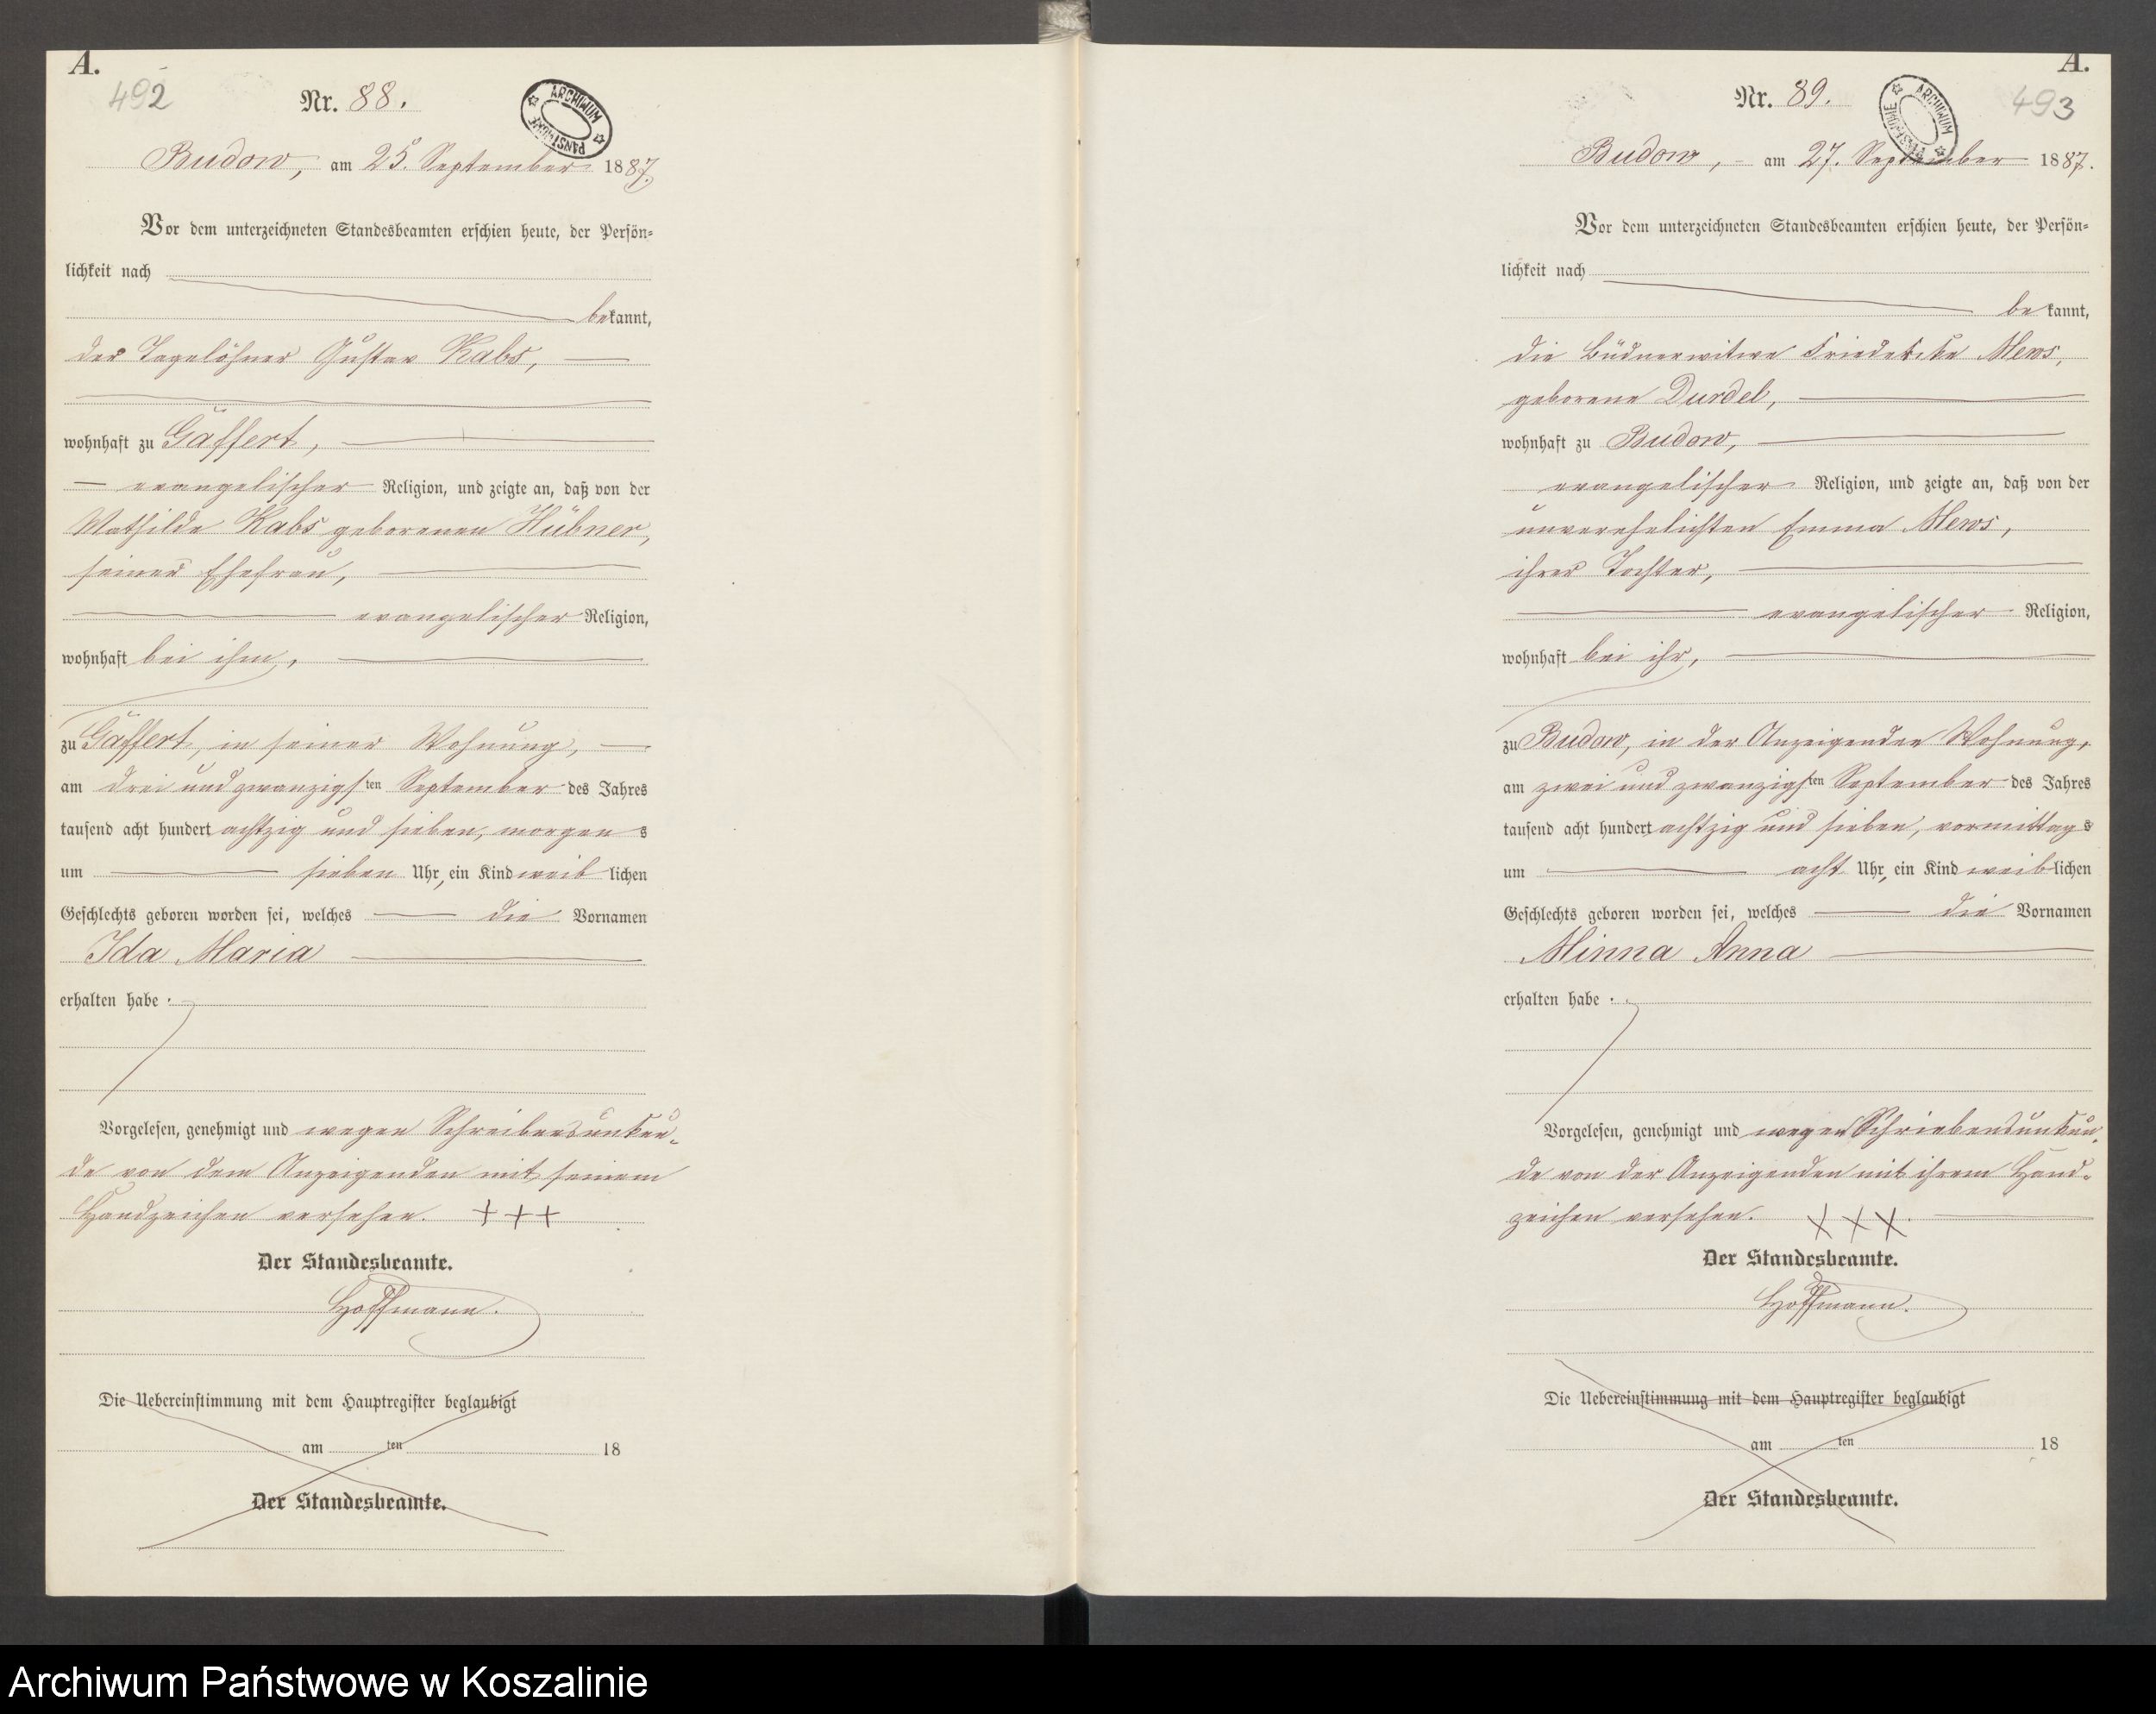 A.
492
Nr. 88.
ARCHIWUM PAŃSTWOWE
Budow, am 25. September 1887.
Vor dem unterzeichneten Standesbeamten erschien heute, der Persön-
lichkeit nach
bekannt,
der Tagelöhner Gustav Kabs,
wohnhaft zu Gaffert,
evangelischer Religion, und zeigte an, daß von der
Mathilde Kabs geborenen Hübner,
seiner Ehefrau,
evangelischer Religion,
wohnhaft bei ihm,
zu Gaffert, in seiner Wohnung,
am drei und zwanzigsten September des Jahres
tausend acht hundert achtzig und sieben, morgens
um sieben Uhr, ein Kind weiblichen
Geschlechts geboren worden sei, welches die Vornamen
Ida Maria
erhalten habe.
Vorgelesen, genehmigt und wegen Schreibensunkun-
de von dem Anzeigenden mit seinem
Handzeichen versehen. +++
Der Standesbeamte.
Hoffmann.
Die Uebereinstimmung mit dem Hauptregister beglaubigt
am ten 18
Der Standesbeamte.
A.
493
Nr. 89.
ARCHIWUM PAŃSTWOWE
Budow, am 27. September 1887.
Vor dem unterzeichneten Standesbeamten erschien heute, der Persön-
lichkeit nach
bekannt,
die Büdnerwitwe Friederike Mews,
geborene Durdel,
wohnhaft zu Budow,
evangelischer Religion, und zeigte an, daß von der
unverehelichten Emma Mews,
ihrer Tochter,
evangelischer Religion,
wohnhaft bei ihr,
zu Budow, in der Anzeigenden Wohnung,
am zwei und zwanzigsten September des Jahres
tausend acht hundert achtzig und sieben, vormittags
um acht Uhr, ein Kind weiblichen
Geschlechts geboren worden sei, welches die Vornamen
Minna Anna
erhalten habe.
Vorgelesen, genehmigt und wegen Schriebensunkun-
de von der Anzeigenden mit ihrem Hand-
zeichen versehen. XXX.
Der Standesbeamte.
Hoffmann.
Die Uebereinstimmung mit dem Hauptregister beglaubigt
am ten 18
Der Standesbeamte.
Archiwum Państwowe w Koszalinie